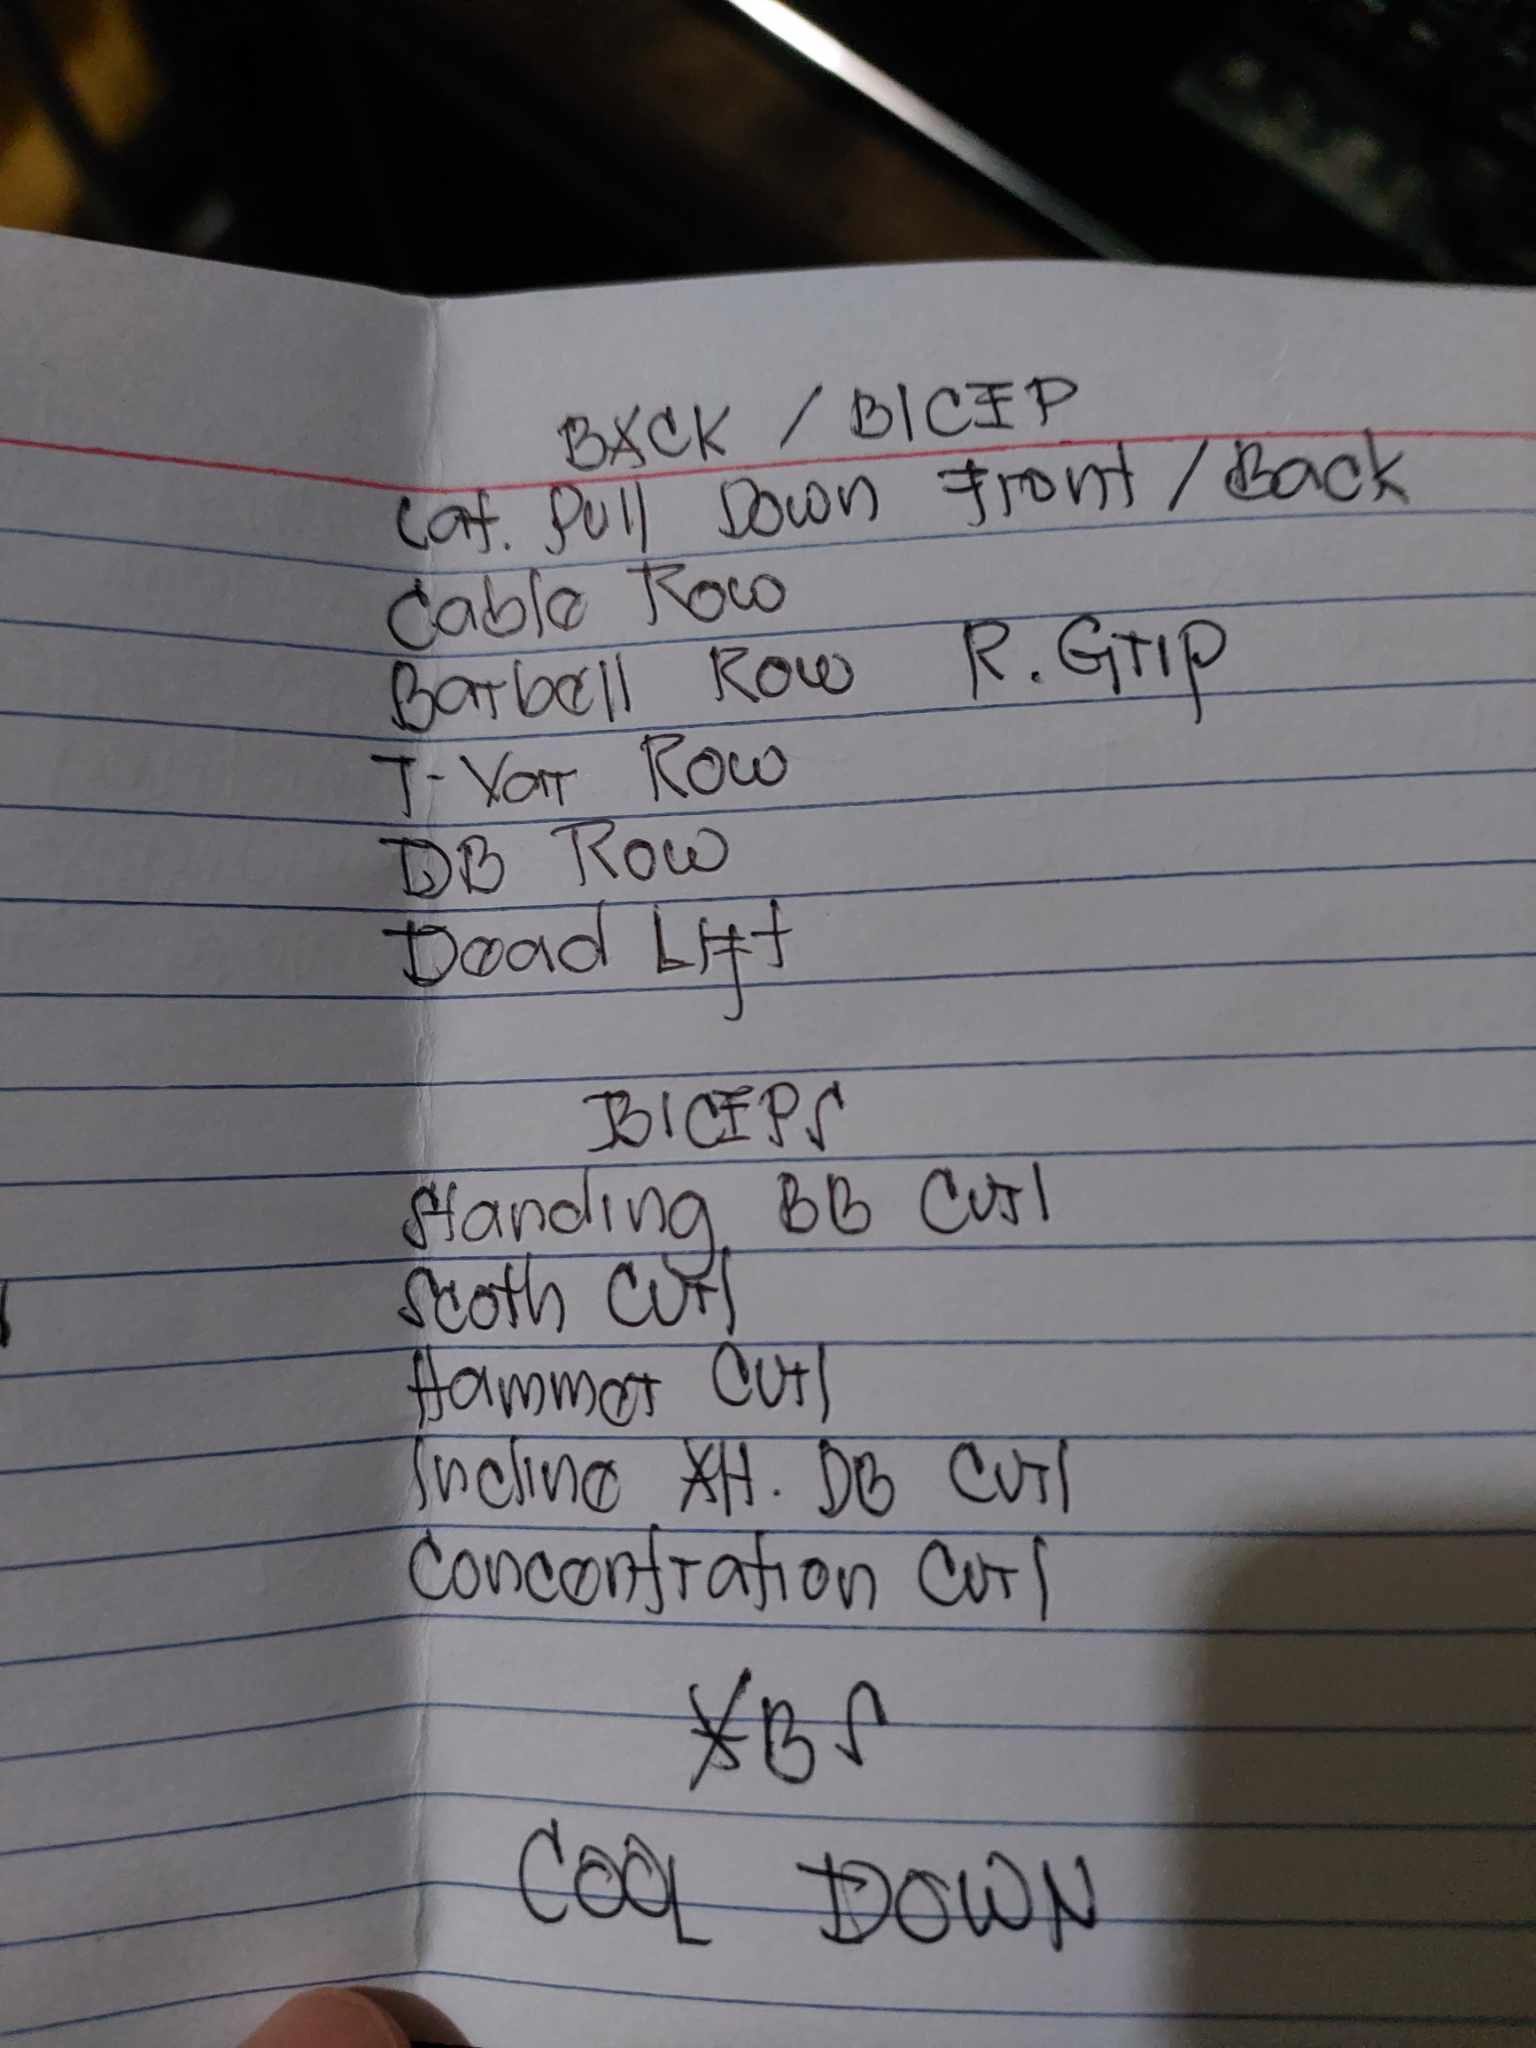 BACK / BICEP
Lat. Pull Down Front / Back
Cable Row
Barbell Row R. Grip
T-Varr Row
DB Row
Dead Lift
BICEPS
Standing BB Curl
Scoth Curl
Hammer Curl
Incline AH. DB Curl
Concentration Curl
ABS
COOL DOWN